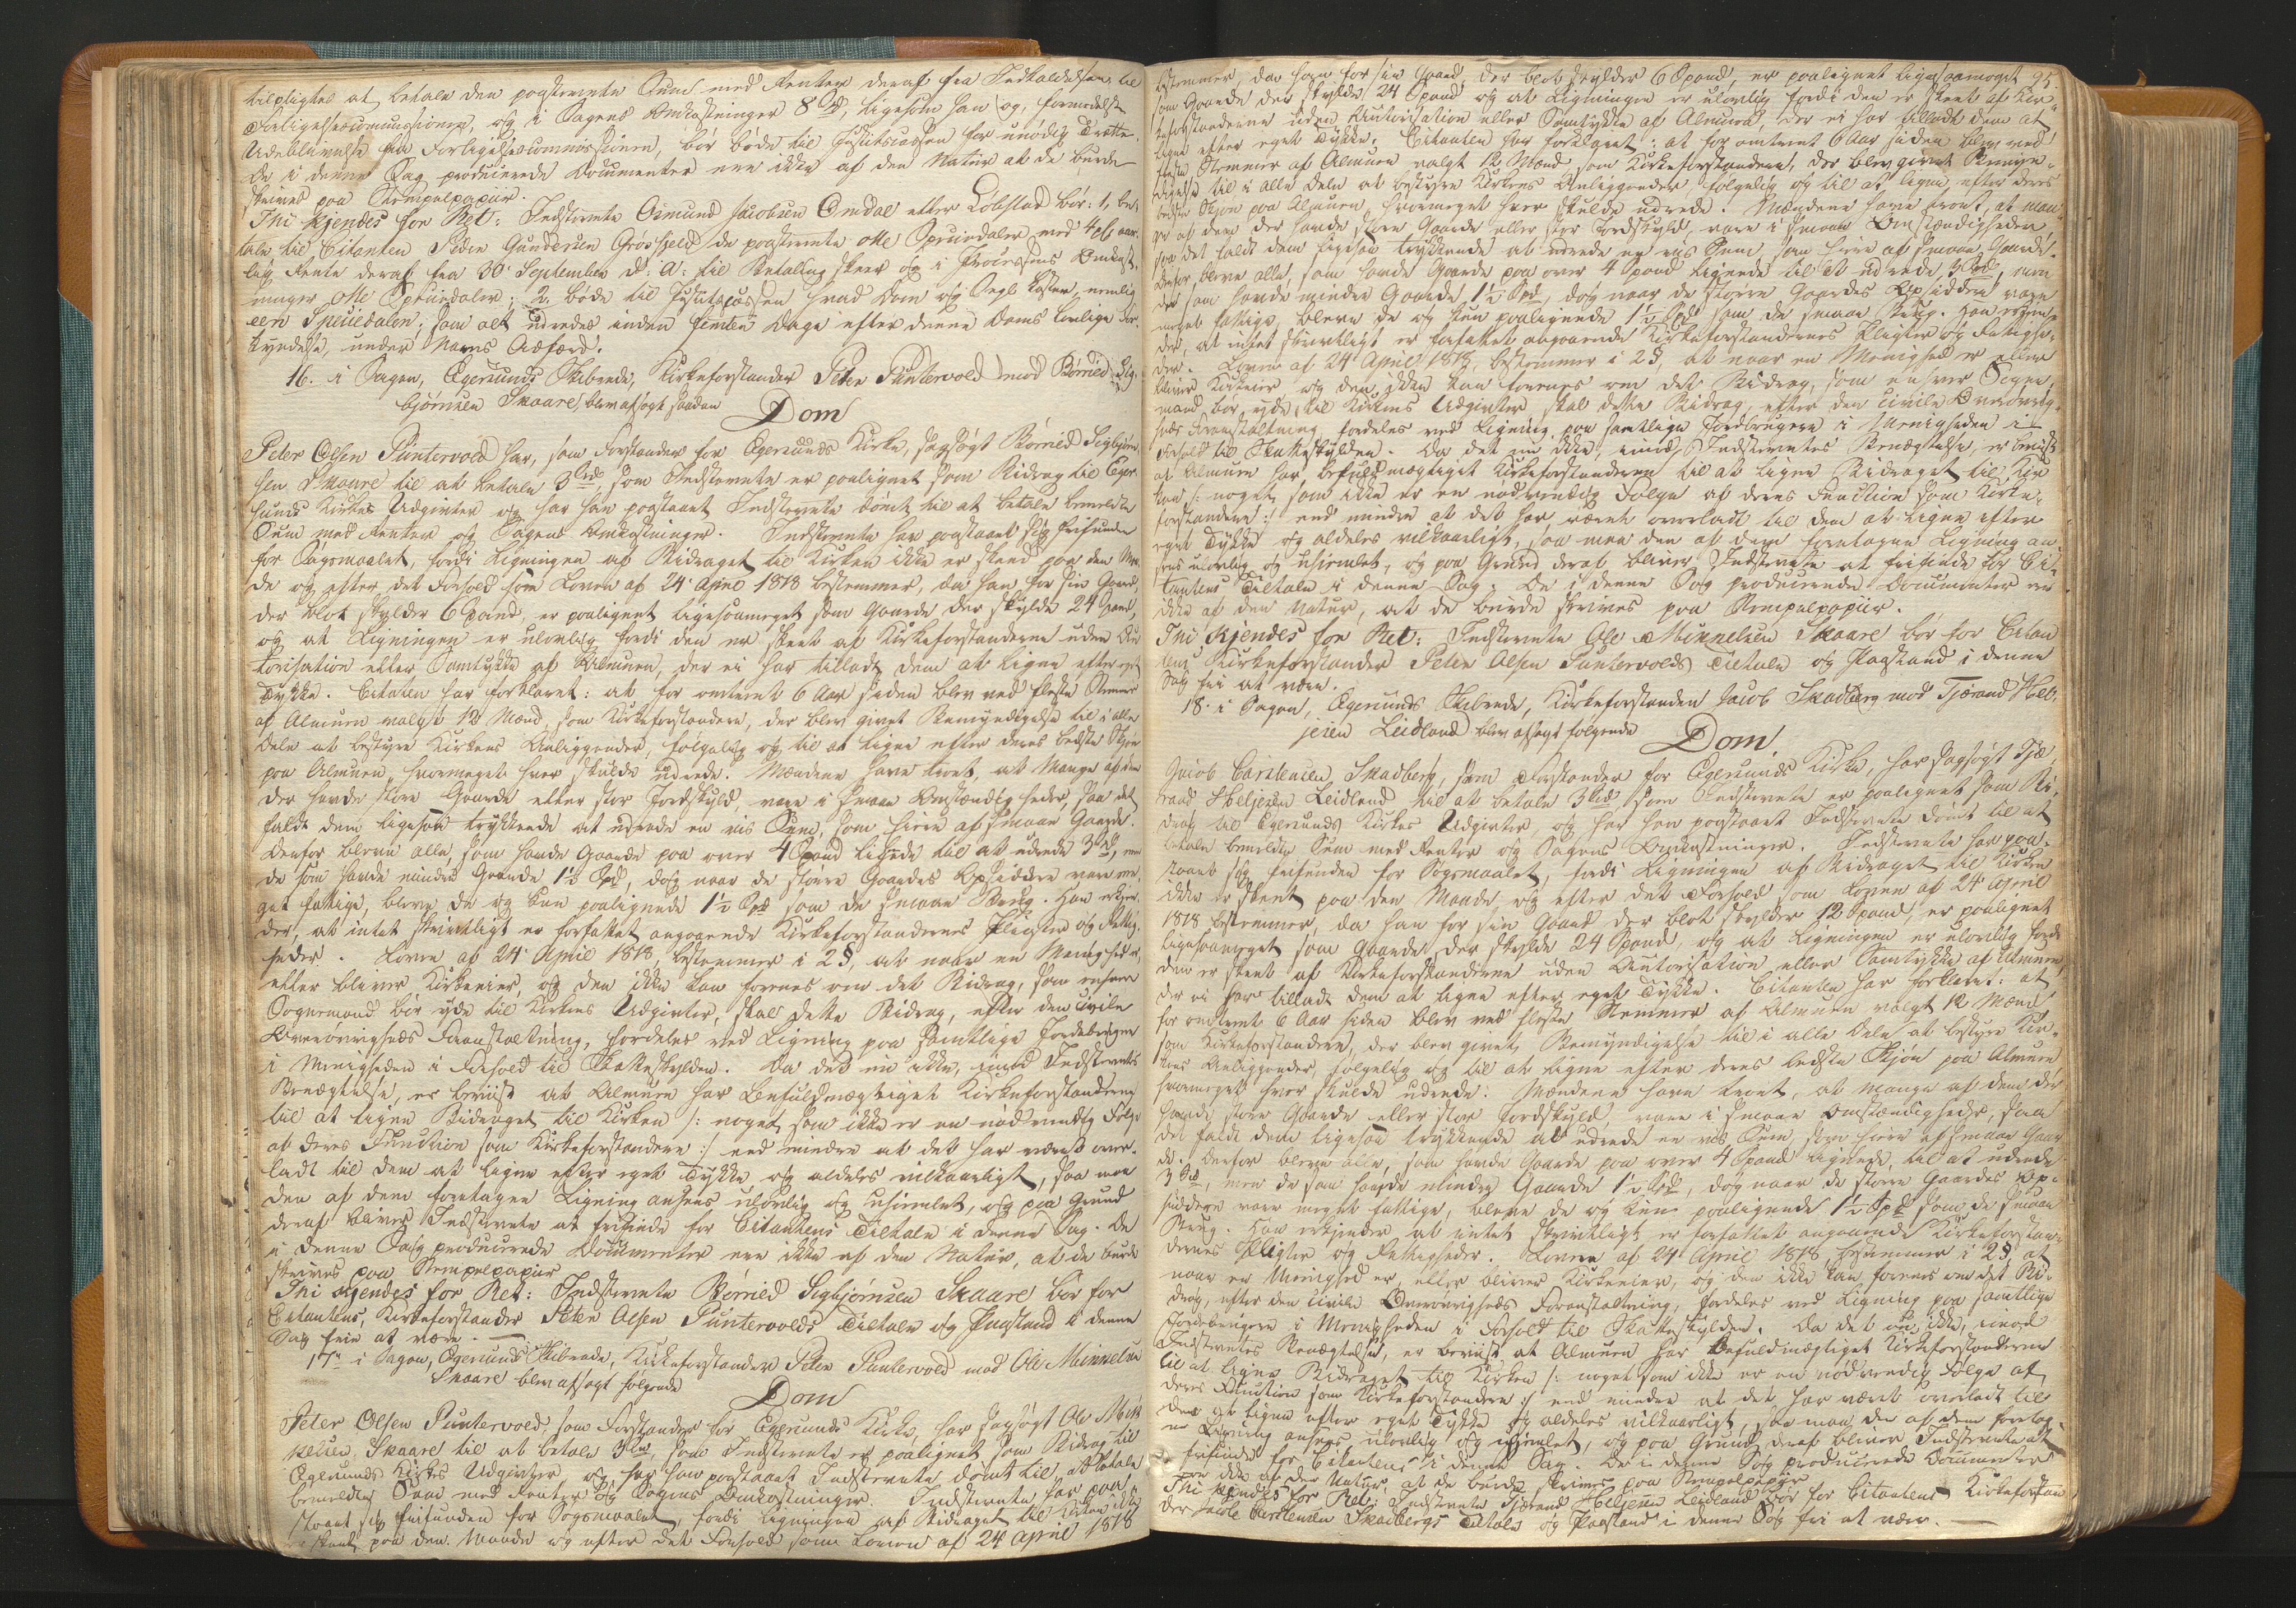 tilpligtes at betale den paastevnte Sum med Renter deraf fra Indkaldelsen til
Forligelsescommissionen, og i Sagens Omkostninger 8 Spd, ligesom han og, formedelst
Udeblivelse fra Forligelsescommissionen, bør bøde til Justitscassen for unødig Trætte.
De i denne Sag producerede Documenter ere ikke af den Natur at de burde
skrives paa Stempelpapiir.
Thi kjendes for Ret: Indstevnte Osmund Jacobsen Omdal eller Løbstad bør: 1, be-
tale til Citanten Peder Gundersen Grøsfjeld de paastevnte otte Speciedaler med 4 % aar-
lig Rente deraf fra 30' September d: A: til Betaling skeer og i Processens Omkost-
ninger otte Speciedaler; 2, bøde til Justitscassen hvad Dom og Segl koster, nemlig
een Speciedaler; som alt udredes inden femten Dage efter denne Doms lovlige For-
kyndelse, under Navns Adfærd.
16. i Sagen, Egersunds Skibrede, Kirkeforstander Peter Puntervold mod Børrild Sig-
bjørnsen Skaare, blev afsagt saadan
Dom
Peter Olsen Puntervold har, som Forstander for Egersunds Kirke, sagsøgt Børrild Sigbjørn-
sen Skaare til at betale 3 Spd, som Indstevnte er paalignet som Bidrag til Eger-
sunds Kirkes Udgivter og har han paastaaet Indstevnte dømt til at betale bemeldte
Sum med Renter og Sagens Omkostninger. Indstevnte har paastaaet sig frifunden
for Søgsmaalet, fordi Ligningen af Bidraget til Kirken ikke er skeed paa den Maa-
de og efter det Forhold som Loven af 24' April 1818 bestemmer, da han for sin Gaard,
der blot skylder 6 Spand, er paalignet ligesaameget som Gaarde der skylde 24 Spand,
og at Ligningen er ulovlig fordi den er skeet af Kirkeforstanderne uden Au-
torisation eller Samtykke af Almuen, der ei har tilladt dem at ligne efter eget
Tykke. Citanten har forklaret: at for omtrent 6 Aar siden blev ved fleste Stemmer
af Almuen valgt 12 Mænd, som Kirkeforstandere, der blev givet Bemyndigelse til i alle
Dele at bestyre Kirkens Anliggender, følgelig og til at ligne efter deres bedste Skjøn
paa Almuen, hvormeget hver skulde udrede. Mændene have troet, at Mange af dem
der havde store Gaarde eller stor Jordskyld, vare i smaae Omstændigheder, saa det
faldt dem ligesaa trykkende at udrede en vis Sum, som Eiere af smaae Gaarde.
Derfor bleve alle, som havde Gaarde paa over 4 Spand lignede til at udrede 3 Spd, men
de som havde mindre Gaarde 1½ Spd, dog naar de større Gaardes Opsiddere vare me-
get fattige, bleve de og kun paalignede 1½ Spd som de smaae Brug. Han erkjen-
der, at intet skrivtligt er forfattet angaaende Kirkeforstandernes Pligter og Rettig-
heder. Loven af 24' April 1818, bestemmer i 2 §, at naar en Menighed er,
eller bliver Kirkeeier, og den ikke kan forenes om det Bidrag, som enhver
Sognemand bør yde til Kirkens Udgivter, skal dette Bidrag, efter den civile
Overøvrigheds Foranstaltning, fordeles ved Ligning paa samtlige Jordbrugere
i Menigheden i Forhold til Skatteskylden. Da det nu ikke, imod Indstevntes
Benægtelse, er beviist at Almuen har befuldmægtiget Kirkeforstanderne
til at ligne Bidraget til Kirken /: noget som ikke er en nødvendig Følge
af deres Function som Kirkeforstandere :/ end mindre at det har været over-
ladt til dem at ligne efter eget Tykke og aldeles vilkaarligt, saa maa
den af dem foretagne Ligning ansees ulovlig og uhjemlet, og paa Grund
deraf bliver Indstevnte at frifinde for Citantens Tiltale i denne Sag. De
i denne Sag producerede Documenter ere ikke af den Natur, at de burde
skrives paa Stempelpapiir
Thi kjendes for Ret: Indstevnte Børrild Sigbjørnsen Skaare bør for
Citantens, Kirkeforstander Peter Olsen Puntervolds Tiltale og Paastand i denne
Sag frie at være.
17. i Sagen, Egersunds Skibrede, Kirkeforstander Peter Puntervold mod Ole Mikkelsen
Skaare blev afsagt følgende
Dom
Peter Olsen Puntervold, som Forstander for Egersunds Kirke, har sagsøgt Ole Mik-
kelsen Skaare til at betale 3 Spd, som Indstevnte er paalignet som Bidrag til
Egersunds Kirkes Udgivter, og har han paastaaet Indstevnte dømt til at betale
bemeldte Sum med Renter og Sagens Omkostninger. Indstevnte har paa-
staaet sig frifunden for Søgsmaalet, fordi Ligningen af Bidraget til Kirken ikke
er skeet paa den Maade og efter det Forhold som Loven af 24 April 1818
95.
bestemmer, da han for sin Gaard, der blot skylder 6 Spand, er paalignet ligesaameget
som Gaarde der skylde 24 Spand og at Ligningen er ulovlig fordi den er skeet af Kir-
keforstanderne uden Autorisation eller Samtykke af Almuen, der ei har tilladt dem at
ligne efter eget Tykke. Citanten har forklaret: at for omtrent 6 Aar siden blev ved
fleste Stemmer af Almuen valgt 12 Mænd, som Kirkeforstandere, der blev givet Bemyn-
digelse til i alle Dele at bestyre Kirkens Anliggender, følgelig og til at ligne, efter deres
bedste Skjøn paa Almuen, hvormeget hver skulde udrede. Mændene have troet, at man-
ge af dem der havde store Gaarde eller stor Jordskyld, vare i smaae Omstændigheder,
saa det faldt dem ligesaa trykkende at udrede en vis Sum, som Eiere af smaae Gaarde.
Derfor bleve alle, som havde Gaarde paa over 4 Spand lignede til at udrede 3 Spd, men
de som havde mindre Gaarde 1½ Spd, dog naar de større Gaardes Opsiddere vare
meget fattige, bleve de og kun paalignede 1½ Spd som de smaae Brug. Han erkjen-
der, at intet skrivtligt er forfattet angaaende Kirkeforstandernes Pligter og Rettighe-
der. Loven af 24 April 1818, bestemmer i 2 §, at naar en Menighed er eller
bliver Kirkeeier og den ikke kan forenes om det Bidrag, som enhver Sogne-
mand bør yde til Kirkens Udgivter skal dette Bidrag, efter den civile Overøvrig-
heds Foranstaltning, fordeles ved Ligning paa samtlige Jordbrugere i Menigheden i
Forhold til Skatteskylden. Da det nu ikke, imod Indstevntes Benægtelse, er beviist
at Almuen har befuldmægtiget Kirkeforstanderne til at ligne Bidraget til Kir-
ken /: noget som ikke er en nødvendig Følge af deres Function som Kirke-
forstandere :/ end mindre at det har været overladt til dem at ligne efter
eget Tykke og aldeles vilkaarligt, saa maa den af dem foretagne Ligning an-
sees ulovlig og uhjemlet, og paa Grund deraf bliver Indstevnte at frifinde for Ci-
tantens Tiltale i denne Sag. De i denne Sag producerede Documenter ere
ikke af den Natur, at de burde skrives paa Stempelpapiir.
Thi kjendes for Ret: Indstevnte Ole Mikkelsen Skaare bør for Citan-
tens Kirkeforstander Peter Olsen Puntervolds Tiltale og Paastand i denne
Sag fri at være.
18. i Sagen, Egersunds Skibrede, Kirkeforstander Jacob Skadberg mod Tjærand Hel-
jesen Leidland blev afsagt følgende
Dom.
Jacob Carstensen Skadberg, som Forstander for Egersunds Kirke, har sagsøgt Tjæ-
rand Heljesen Leidland til at betale 3 Spd som Indstevnte er paalignet som Bi-
drag til Egersunds Kirkes Udgivter, og har han paastaaet Indstevnte dømt til at
betale bemeldte Sum med Renter og Sagens Omkostninger. Indstevnte har paa-
staaet sig frifunden for Søgsmaalet, fordi Ligningen af Bidraget til Kirken
ikke er skeet paa den Maade og efter det Forhold som Loven af 24' April
1818 bestemmer, da han for sin Gaard der blot skylder 12 Spand, er paalignet
ligesaameget som Gaarde der skylde 24 Spand, og at Ligningen er ulovlig fordi
den er skeet af Kirkeforstanderne uden Autorisation eller Samtykke af Almuen,
der ei har tilladt dem at ligne efter eget Tykke. Citanten har forklaret: at
for omtrent 6 Aar siden blev ved fleste Stemmer af Almuen valgt 12 Mænd
som Kirkeforstandere, der blev givet Bemyndigelse til i alle Dele at bestyre Kir-
kens Anliggender, følgelig og til at ligne efter deres bedste Skjøn paa Almuen
hvormeget hver skulde udrede. Mændene have troet, at mange af dem der
havde store Gaarde eller stor Jordskyld, vare i smaae Omstændigheder, saa
det faldt dem ligesaa trykkende at udrede en vis Sum, som Eiere af smaae Gaar-
de. Derfor bleve alle, som havde Gaarde paa over 4 Spand lignede, til at udrede
3 Spd, men de som havde mindre Gaarde 1½ Spd, dog naar de større Gaardes Op-
siddere vare meget fattige, bleve de og kun paalignede 1½ Spd som de smaae
Brug. Han erkjender at intet skrivtligt er forfattet angaaende Kirkeforstan-
dernes Pligter og Rettigheder. Loven af 24' April 1818, bestemmer i 2 §, at
naar en Menighed er, eller bliver Kirkeeier, og den ikke kan forenes om det Bi-
drag, efter den civile Overøvrigheds Foranstaltning, fordeles ved Ligning paa samtlige
Jordbrugere i Menigheden i Forhold til Skatteskylden. Da det nu ikke, imod
Indstevntes Benægtelse, er beviist at Almuen har befuldmægtiget Kirkeforstanderne
til at ligne Bidraget til Kirken /: noget som ikke er en nødvendig Følge af
deres Function som Kirkeforstandere :/ end mindre at det har været overladt til
dem at ligne efter eget Tykke og aldeles vilkaarligt, saa maa den af dem foretag-
ne Ligning ansees ulovlig og uhjemlet, og paa Grund deraf bliver Indstevnte at
frifinde for Citantens i denne Sag. De i denne Sag producerede Documenter
ere ikke af den Natur, at de burde skrives paa Stempelpapiir
Thi kjendes for Ret: Indstevnte Tjærand Heljesen Leidland bør for Citantens Kirkeforstan-
der Jacob Carstensen Skadbergs Tiltale og Paastand i denne Sag fri at være.